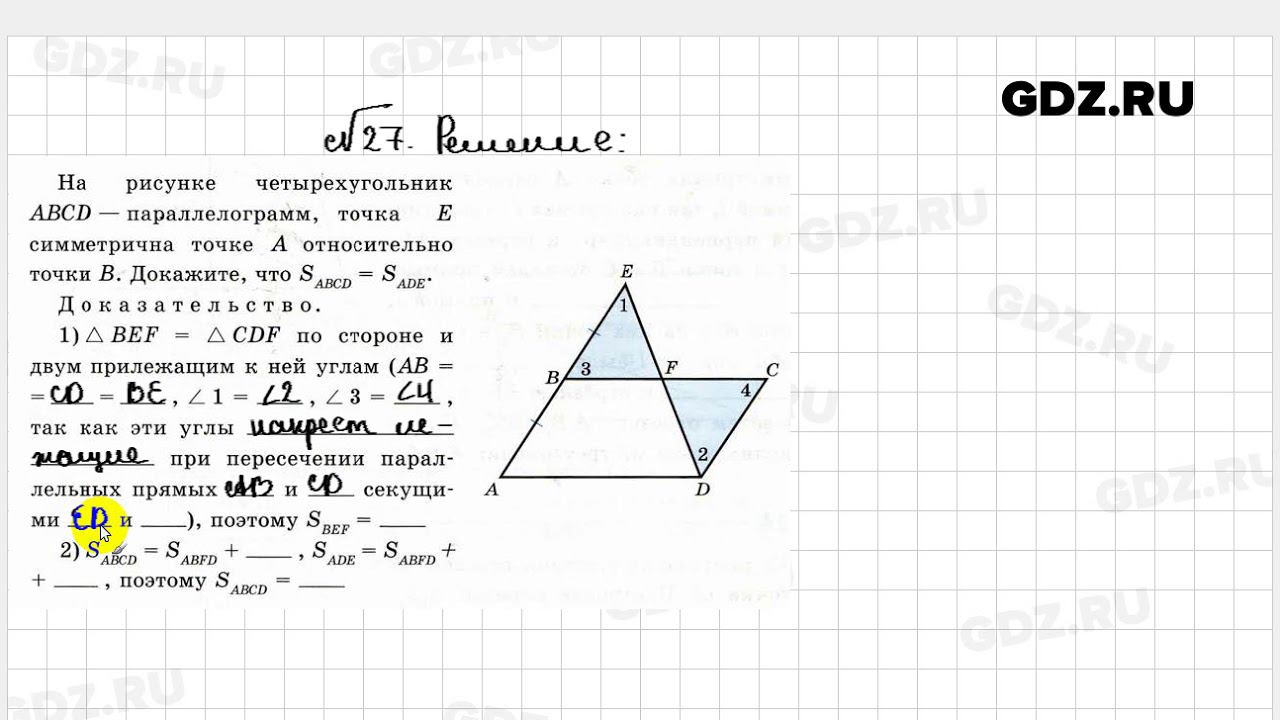 GDZ.RU
GDZ.RU
GDZ.RU
№27. Решение:
На рисунке четырехугольник
ABCD — параллелограмм, точка E
симметрична точке A относительно
точки B. Докажите, что S_ABCD = S_ADE.
Доказательство.
1) △ BEF = △ CDF по стороне и
двум прилежащим к ней углам (AB =
= CD = BE, ∠ 1 = ∠2, ∠ 3 = ∠4,
так как эти углы накрест ле-
жащие при пересечении парал-
лельных прямых AB и CD секущи-
ми ED и ____), поэтому S_BEF = ____
2) S_ABCD = S_ABFD + ____, S_ADE = S_ABFD +
+ ____, поэтому S_ABCD = ____
E
1
B 3 F C
4
2
A D
GDZ.RU
GDZ.RU
GDZ.RU
GDZ.RU
GDZ.RU